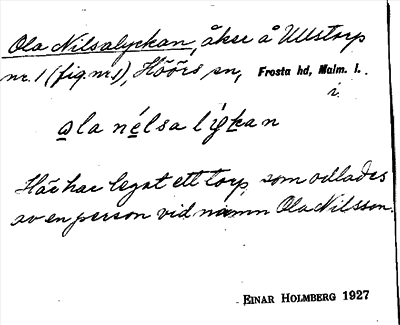 Ola Nilsalyckan, åker å Ullstorp
nr. 1 (fig. nr 1), Höörs sn, Frosta hd, Malm. l.
i.
ola nélsa lykan
Här har legat ett torp, som odlades
av en person vid namn Ola Nilsson.
EINAR HOLMBERG 1927